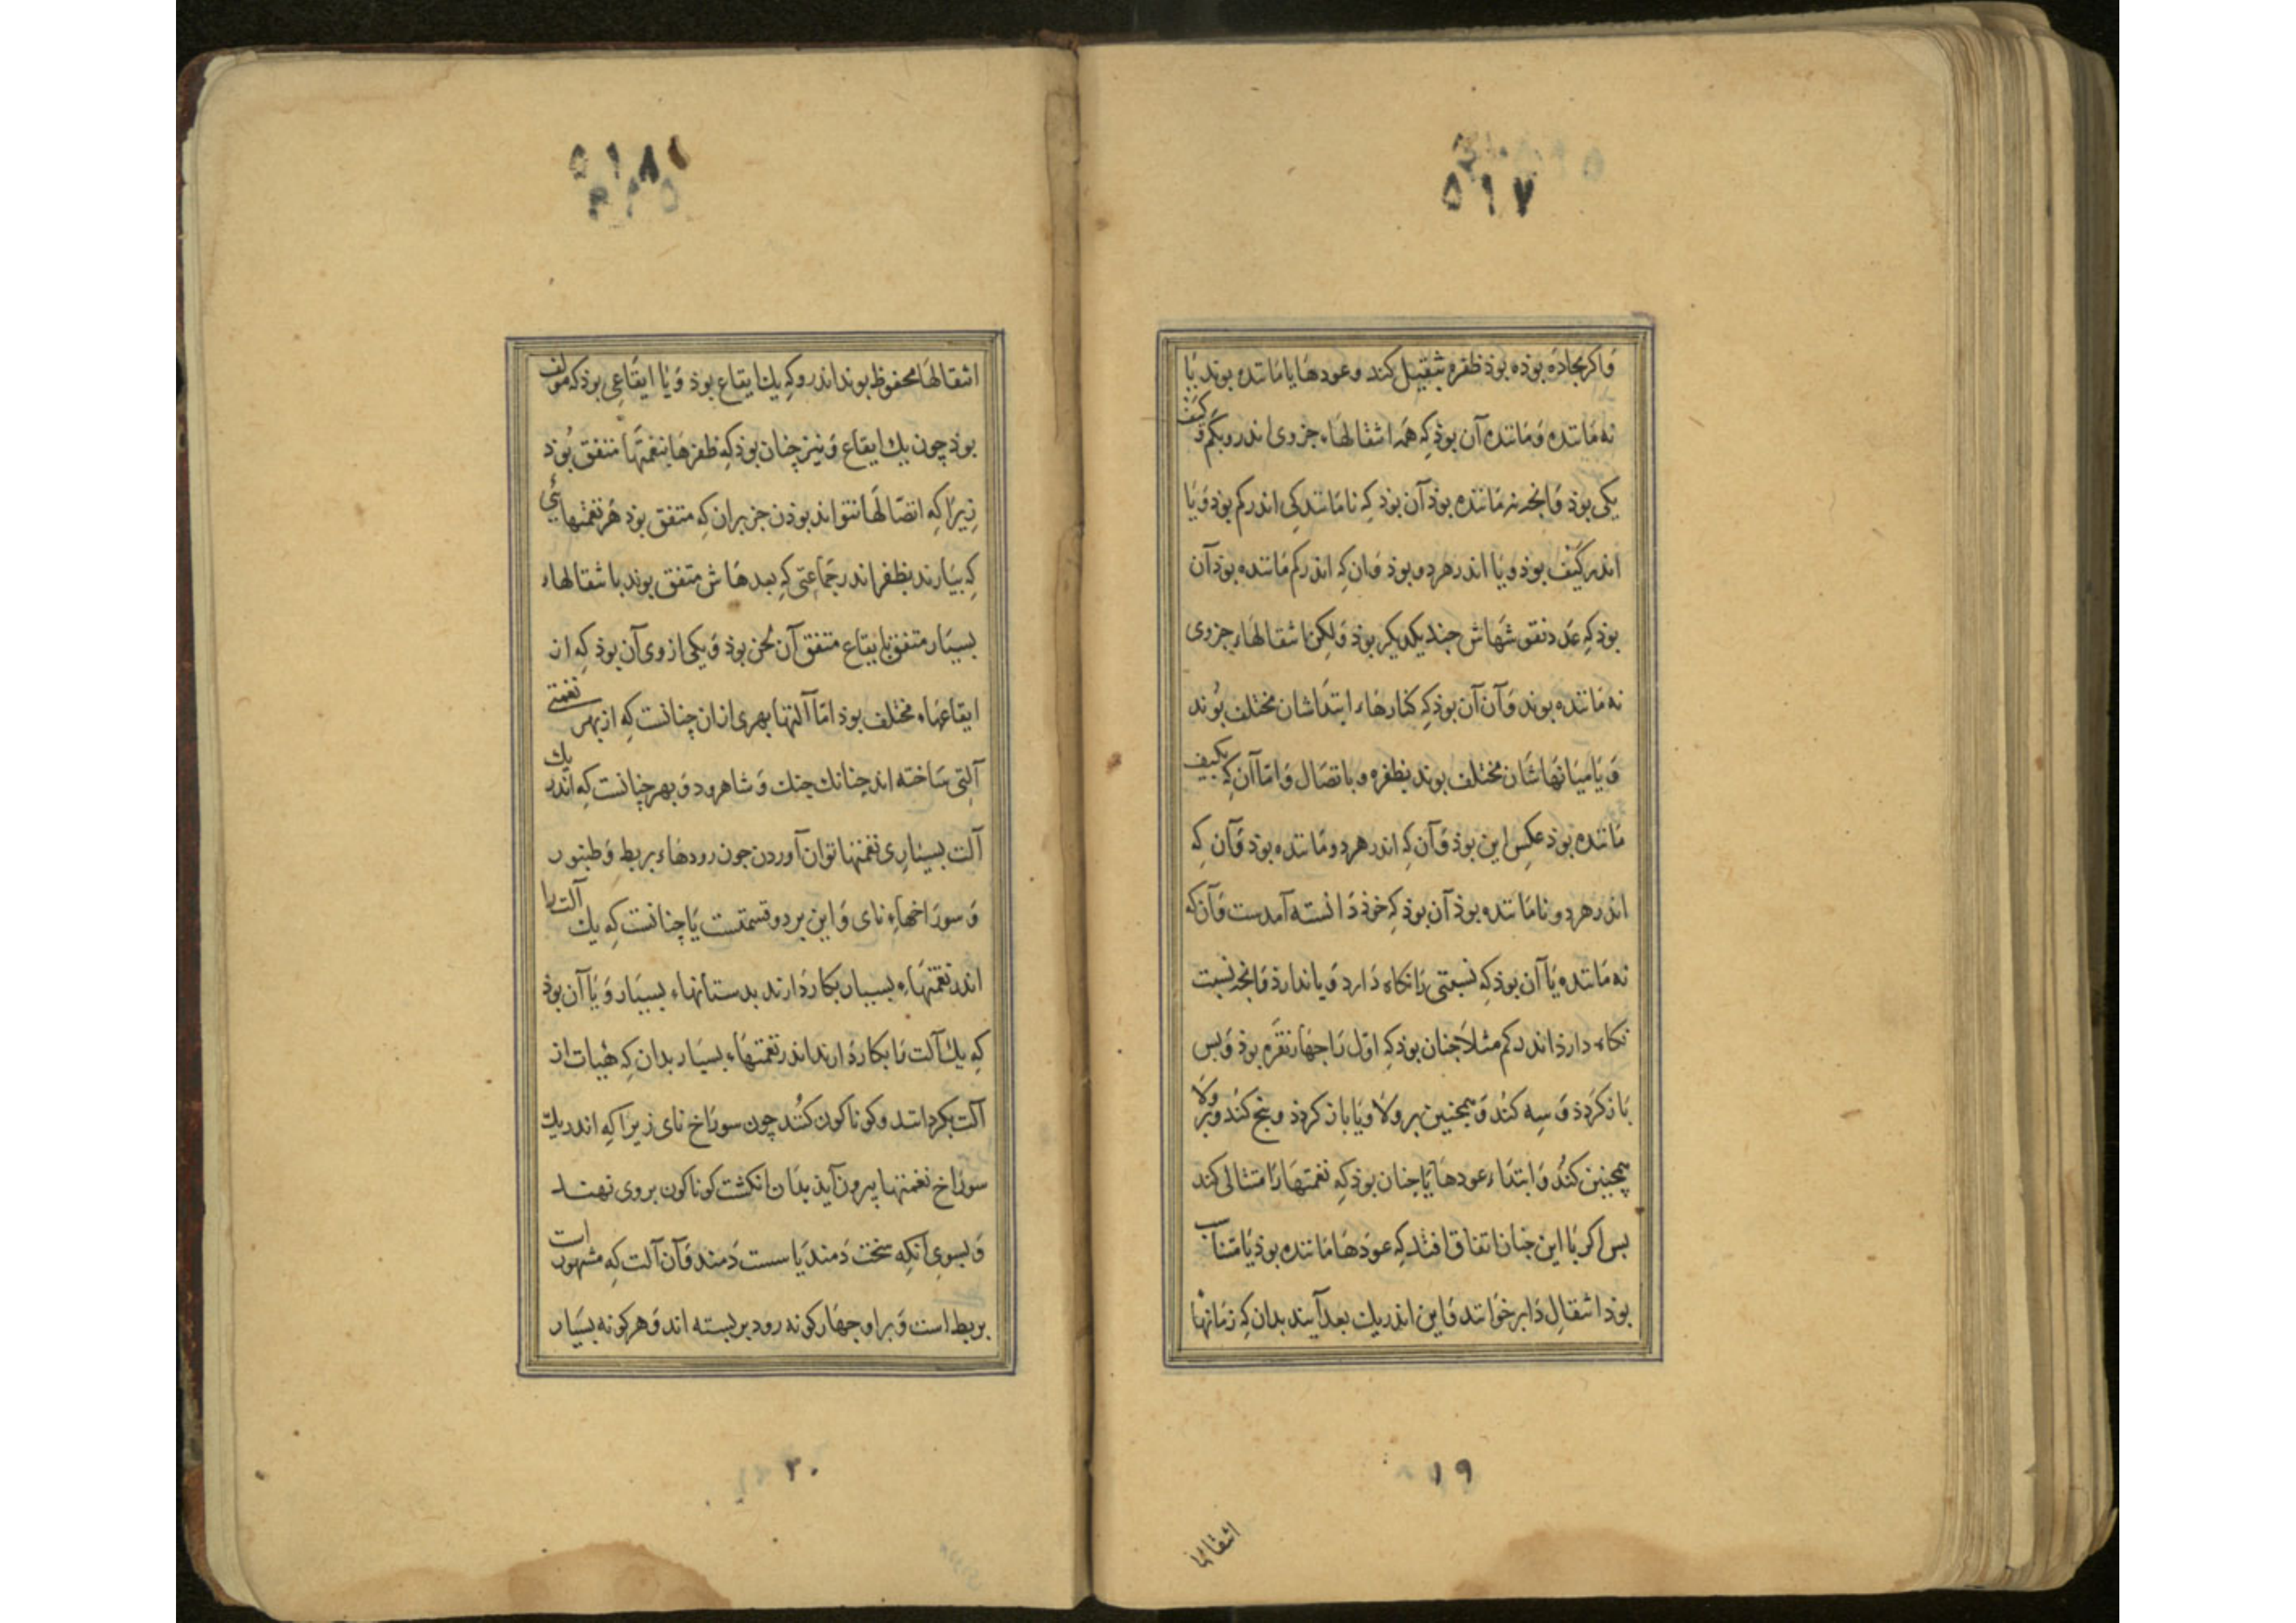 ۵۱۷
وَاکر بجادَه بوذه بوذ ظفره بثقیل کند و عودهَا یا مَانَنده بوند یَا
نه مَاننده وَ مَاننده آن بوذ کِه همَه انتقالهَاء جزوی اندرو بکَم وَ کَیف
یکی بوذ وَ انجه نه مَاننده بوذ آن بوذ کِه نامَانندکی اندر کم بوذ وَ یَا
اندر کَیف بوذ وَ یَا اندر هر دو بوذ وَ ان کِه اندر کم مَاننده بوذ آن
بوذ کِه عدد نقره هاش جند یکدیکر بوذ وَ لکِن انتقالهَاء جزوی
نه مَاننده بوند وَ آن آن بوذ کِه کنارهَاء ابتدَاشان مختلف بُوند
وَ یَا میَانهَاشَان مختلف بوند بظفره و باتصَال وَ امّا آن کِه بکیف
مَاننده بوذ عکِس این بوذ وَ آن کِه اندر هر دو مَاننده بوذ وَ آن کِه
اندر هر دو نامَاننده بوذ آن بوذ کِه خوذ دَانسته آمدست وَ آن که
نه مَاننده یَا آن بوذ کِه نسبتی رَا نکاه دَارد وَ یا ندارذ وَ انجه نسبت
نکاه دارذ اندر کم مثلاً جنان بوذ کِه اوّل رَا جهَار نقرَه بوذ وَ بس
بَاز کرَدذ وَ سِه کند وَ همجنین بر ولَا وَ یَا باز کرذذ و بنج کند وَ بر ولَا
همجنین کنُد وَ ابتدَاء عودهَا یَا جنان بوذ کِه نغمتهَا رَا مثالی کند
بس اکر بَا این جنان اتفاق افتد کِه عودَهَا مَاننده بوذ یَا متَناسب
بوذ انتقالِ دَایر خوَانند وَ این اندر یك بعد آیند بدان کِه زمَانهَا
۱۹
انتقالها
۵۱۸
انتقالهَا محفوظ بوند اندرو کِه یك ایقاع بوذ وَ یَا ایقَاعِی بوذ که مولف
بوذ چون یك ایقاع وَ نیز چنان بوذ کِه ظفرهَا بنغمتهَا متفق بُوذ
زیرَا کِه اتصَالهَا نتواند بوذن جز بران کِه متفق بوذ هر نغمتهائی
کِه بیَارند بظفر اندر جَماعتی کِه بعدهَاش متفق بوند با نتقالهاء
بسیَار متفق بایقاع متفق آن لَحن بوذ وَ یکی از وی آن بوذ کِه از
ایقاعهاء مختلف بوذ امّا آلتها بهری ازان چنانست کِه از بهر نغمتی
آلتِی سَاخته اند چنانك جنك وَ شاهرود وَ بهر چنانست کِه اندر یك
آلت بسیَاری نغمتها توان آوردن جون رودهَاء بربط وَ طنبور
وَ سورَاخهاءِ نای وَ این بر دو قسمتست یَا چنانست کِه یك آلت را
اندر نغمتهَاء بسیار بکار دَارند بدستانهاء بسیَار وَ یَا آن بوذ
کِه یك آلت رَا بکار دَارند اندر نغمتهَاء بسیَار بدان کِه هیَات از
آلت بکردانند و کوناکون کنُند چون سورَاخ نای زیرَا کِه اندر یك
سورَاخ نغمتها بیرون آید بدَان انکشت کوناکون بروی نهند
وَ بسویِ آنکِه سَخت دَمند یَا سست دَمند وَ آن آلت کِه مشهور است
بربط است وَ بر او جهَار کونه رود بر بسته اند وَ هر کونه بسیَار
۲۰